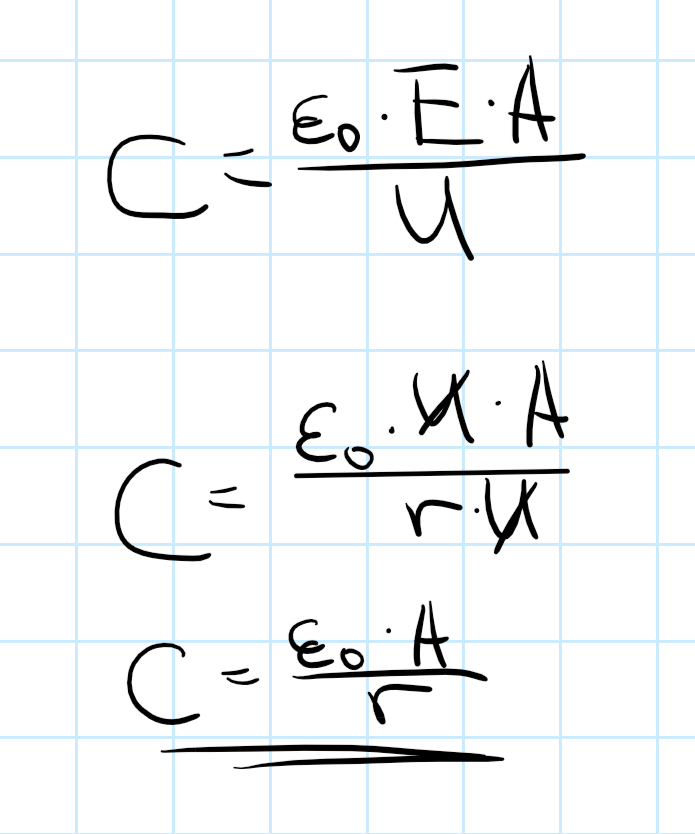 C = ε₀ · E · A / U
C = ε₀ · U · A / r · U
C = ε₀ · A / r